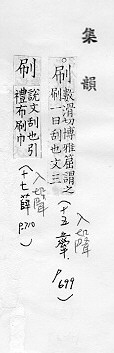 集韻
。刷
數滑切博雅謂之
刷一曰刮也文三
入聲
(十五舝)
P699
刷
說文刮也引
禮布刷巾
入聲
(十七薛)
P710